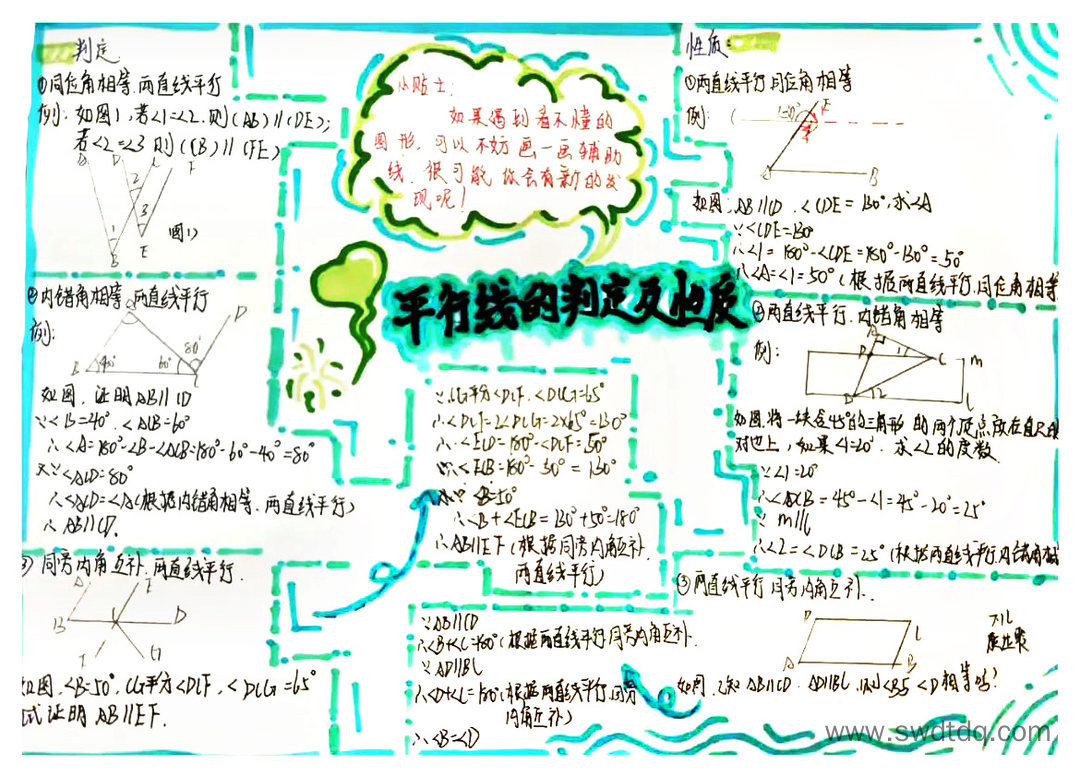 判定
①同位角相等.两直线平行
例: 如图1, 若<1=<2.则(AB)//(DE);
若<2=<3 则 (CB)//(FE)
图1)
②内错角相等,两直线平行
例:
40° 60° 80°
如图.证明AB//CD
∵<B=40°.<ACB=60°
∴<A=180°-<B-<ACB=180°-60°-40°=80°
又∵<ACD=80°
∴<ACD=<A(根据内错角相等.两直线平行)
∴ AB//CD.
同旁内角互补.两直线平行.
如图.<B=50°, CG平分<DCF, <DCG=65°
试证明 AB//EF.
小贴士:
如果遇到看不懂的
图形,可以不妨画一画辅助
线.很可能你会有新的发
现呢!
平行线的判定及性质
∵CG平分<DCF.<DCG=65°
∴<DCF=2<DCG=2×65°=130°
∴<ECD=180°-<DCF=50°
<ECB=180°-50°=130°
<B=50°
∴<B+<ECB=130°+50°=180°
∴AB//EF(根据同旁内角互补.
两直线平行)
∵AB//CD
∴<B+<C=180°(根据两直线平行.同旁内角互补.
∵AD//BC
∴<D+<C=180°(根据两直线平行.同旁
内角互补)
∴<B=<D
性质
①两直线平行.同位角相等
例:
130°
A B
如图.AB//CD.<CDE=130°,求<A
∵<CDE=130°
∴<1=180°-<CDE=180°-130°=50°
∴<A=<1=50°(根据两直线平行.同位角相等
②两直线平行.内错角相等
例:
如图.将一块含45°的三角形的两个顶点放在直尺的
对边上,如果<1=20°.求<2的度数.
∵<1=20°
∴<DCB=45°-<1=45°-20°=25°
∵ m//l
∴<2=<DCB=25°(根据两直线平行.内错角相
③两直线平行.同旁内角互补.
如图.已知AB//CD.AD//BC,则<B与<D相等吗?
www.swdtdq.com